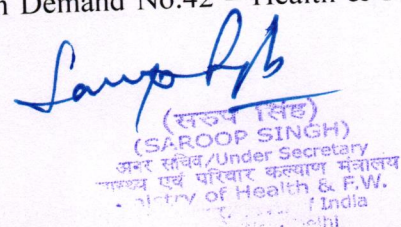 Demand No.42 – Health &
(सरुप सिंह)
(SAROOP SINGH)
अवर सचिव/Under Secretary
स्वास्थ्य एवं परिवार कल्याण मंत्रालय
Ministry of Health & F.W.
India